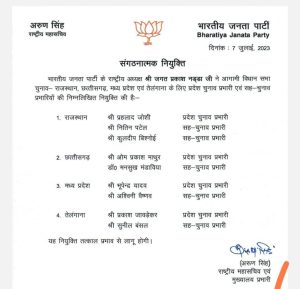 अरुण सिंह
राष्ट्रीय महासचिव
भारतीय जनता पार्टी
Bharatiya Janata Party
दिनांक : 7 जुलाई, 2023
संगठनात्मक नियुक्ति
भारतीय जनता पार्टी के राष्ट्रीय अध्यक्ष श्री जगत प्रकाश नड्डा जी ने आगामी विधान सभा
चुनाव- राजस्थान, छत्तीसगढ़, मध्य प्रदेश एवं तेलंगाना के लिए प्रदेश चुनाव प्रभारी एवं सह-चुनाव
प्रभारियों की निम्नलिखित नियुक्ति की है:-
1. राजस्थान श्री प्रहलाद जोशी प्रदेश चुनाव प्रभारी
श्री नितिन पटेल सह-चुनाव प्रभारी
श्री कुलदीप बिश्नोई सह-चुनाव प्रभारी
2. छत्तीसगढ़ श्री ओम प्रकाश माथुर प्रदेश चुनाव प्रभारी
डॉ मनसुख मंडाविया सह-चुनाव प्रभारी
3. मध्य प्रदेश श्री भूपेन्द्र यादव प्रदेश चुनाव प्रभारी
श्री अश्विनी वैष्णव सह-चुनाव प्रभारी
4. तेलंगाना श्री प्रकाश जावड़ेकर प्रदेश चुनाव प्रभारी
श्री सुनील बंसल सह-चुनाव प्रभारी
यह नियुक्ति तत्काल प्रभाव से लागू होगी।
(अरुण सिंह)
राष्ट्रीय महासचिव एवं
मुख्यालय प्रभारी